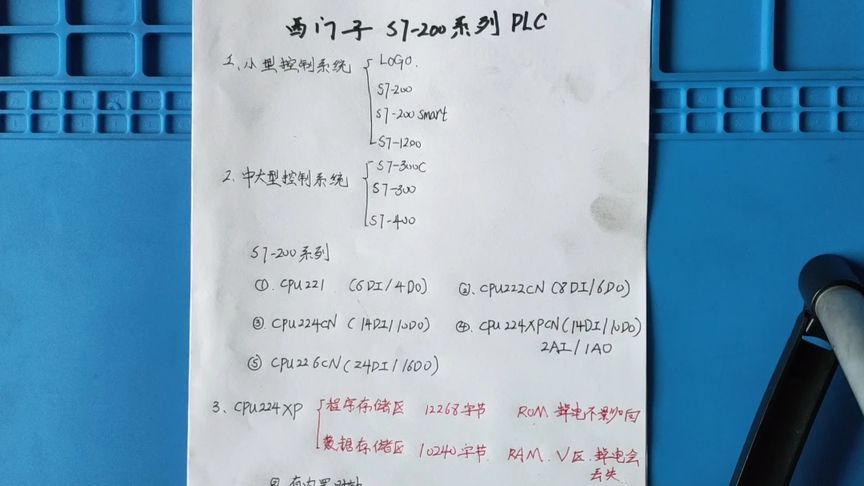 西门子 S7-200系列 PLC
1、小型控制系统 { LOGO.
S7-200
S7-200 smart
S7-1200
2、中大型控制系统 { S7-300C
S7-300
S7-400
S7-200系列
①. CPU221 (6DI/4DO) ②、CPU222CN (8DI/6DO)
③ CPU224CN (14DI/10DO) ④. CPU224XPCN (14DI/10DO)
2AI/1AO
⑤ CPU226CN (24DI/16DO)
3、CPU224XP { 程序存储区 12268字节 ROM 掉电不影响
数据存储区 10240字节 RAM、V区、掉电会
丢失